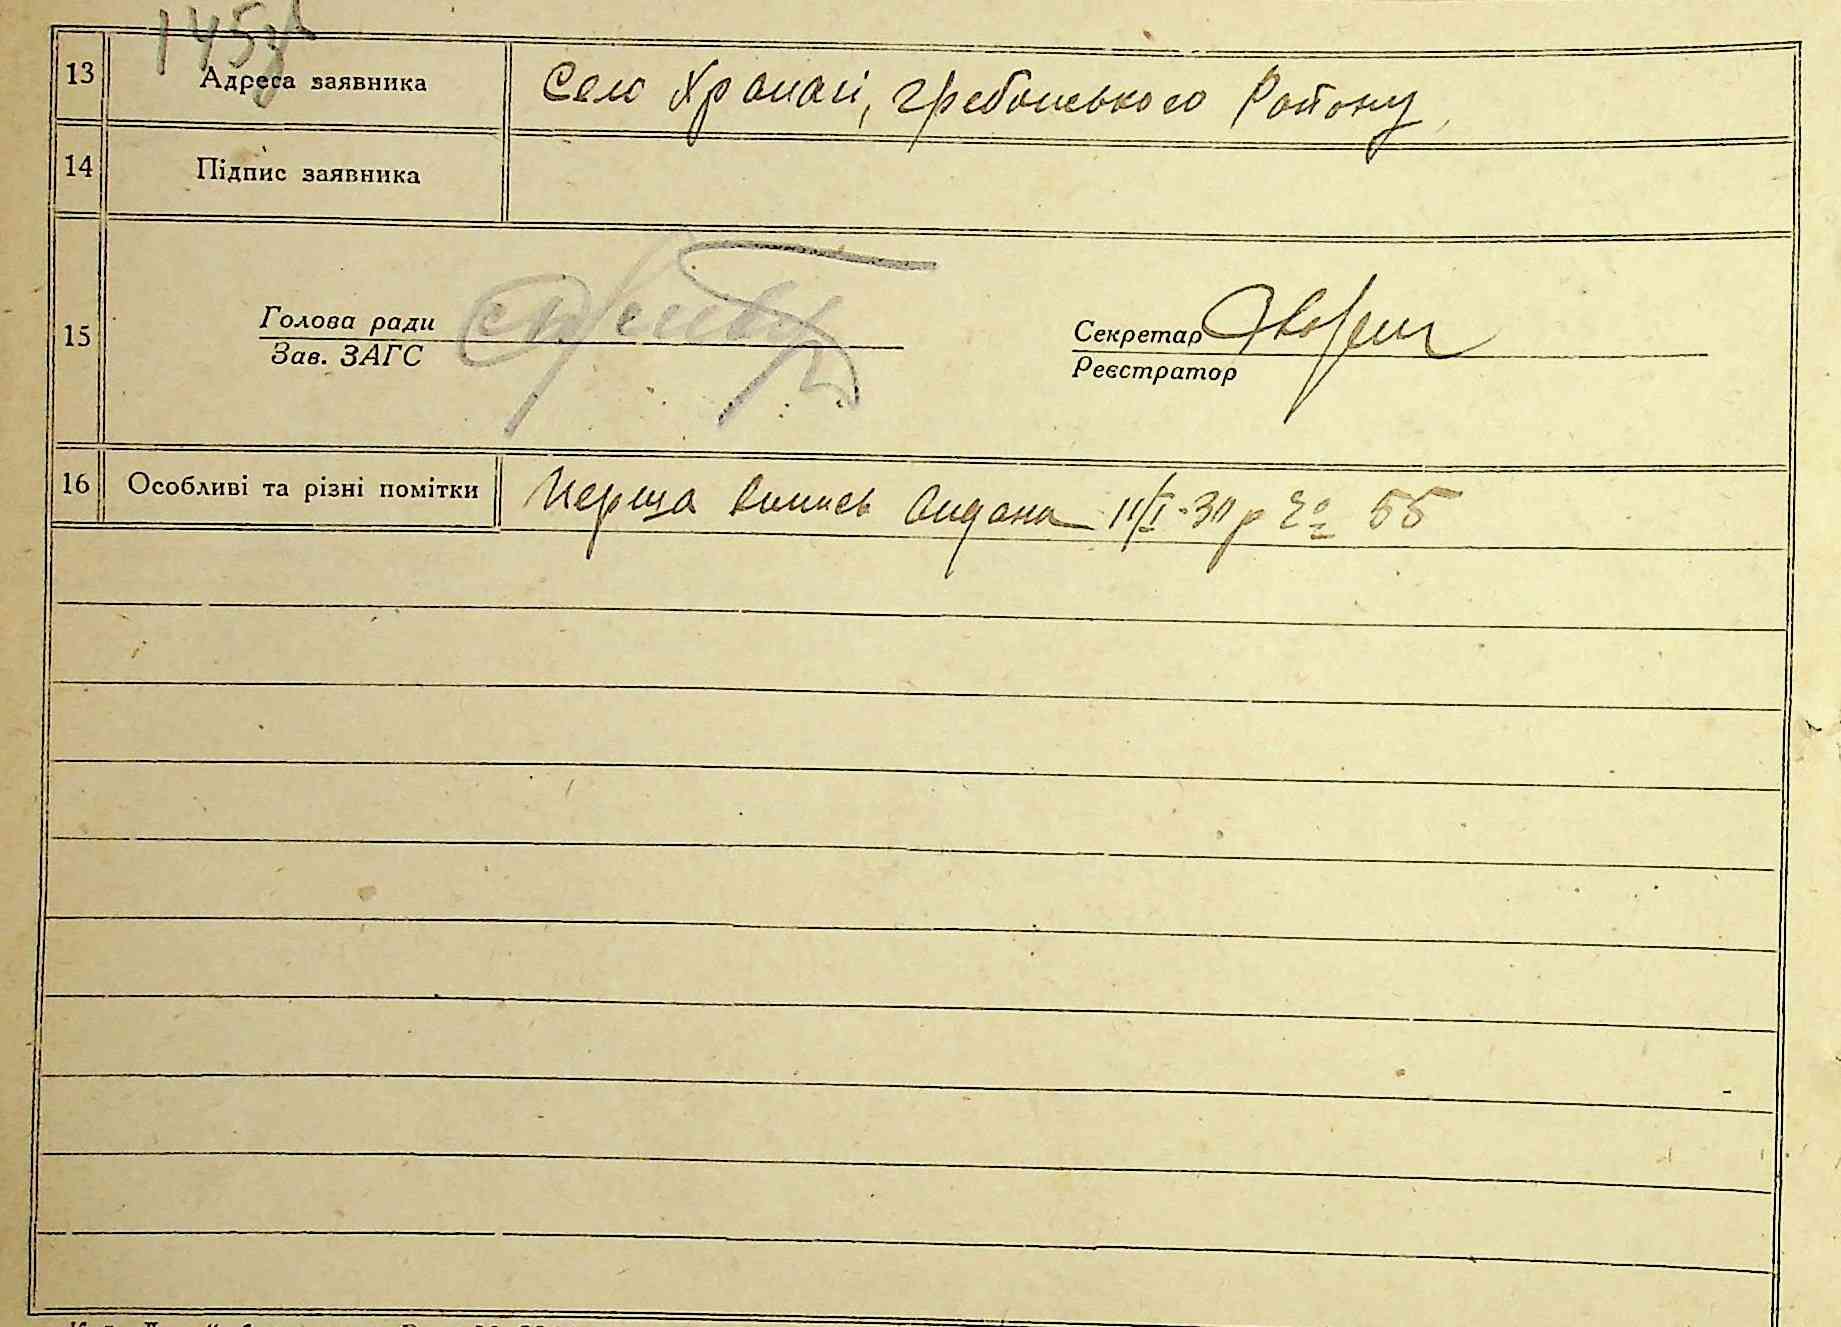 145
13 Адреса заявника Село Храпачі, гребінського Району
14 Підпис заявника
15 Голова ради Секретар
Зав. ЗАГС Реєстратор
16 Особливі та різні помітки Перша випись видана 11/I-30 р № 55